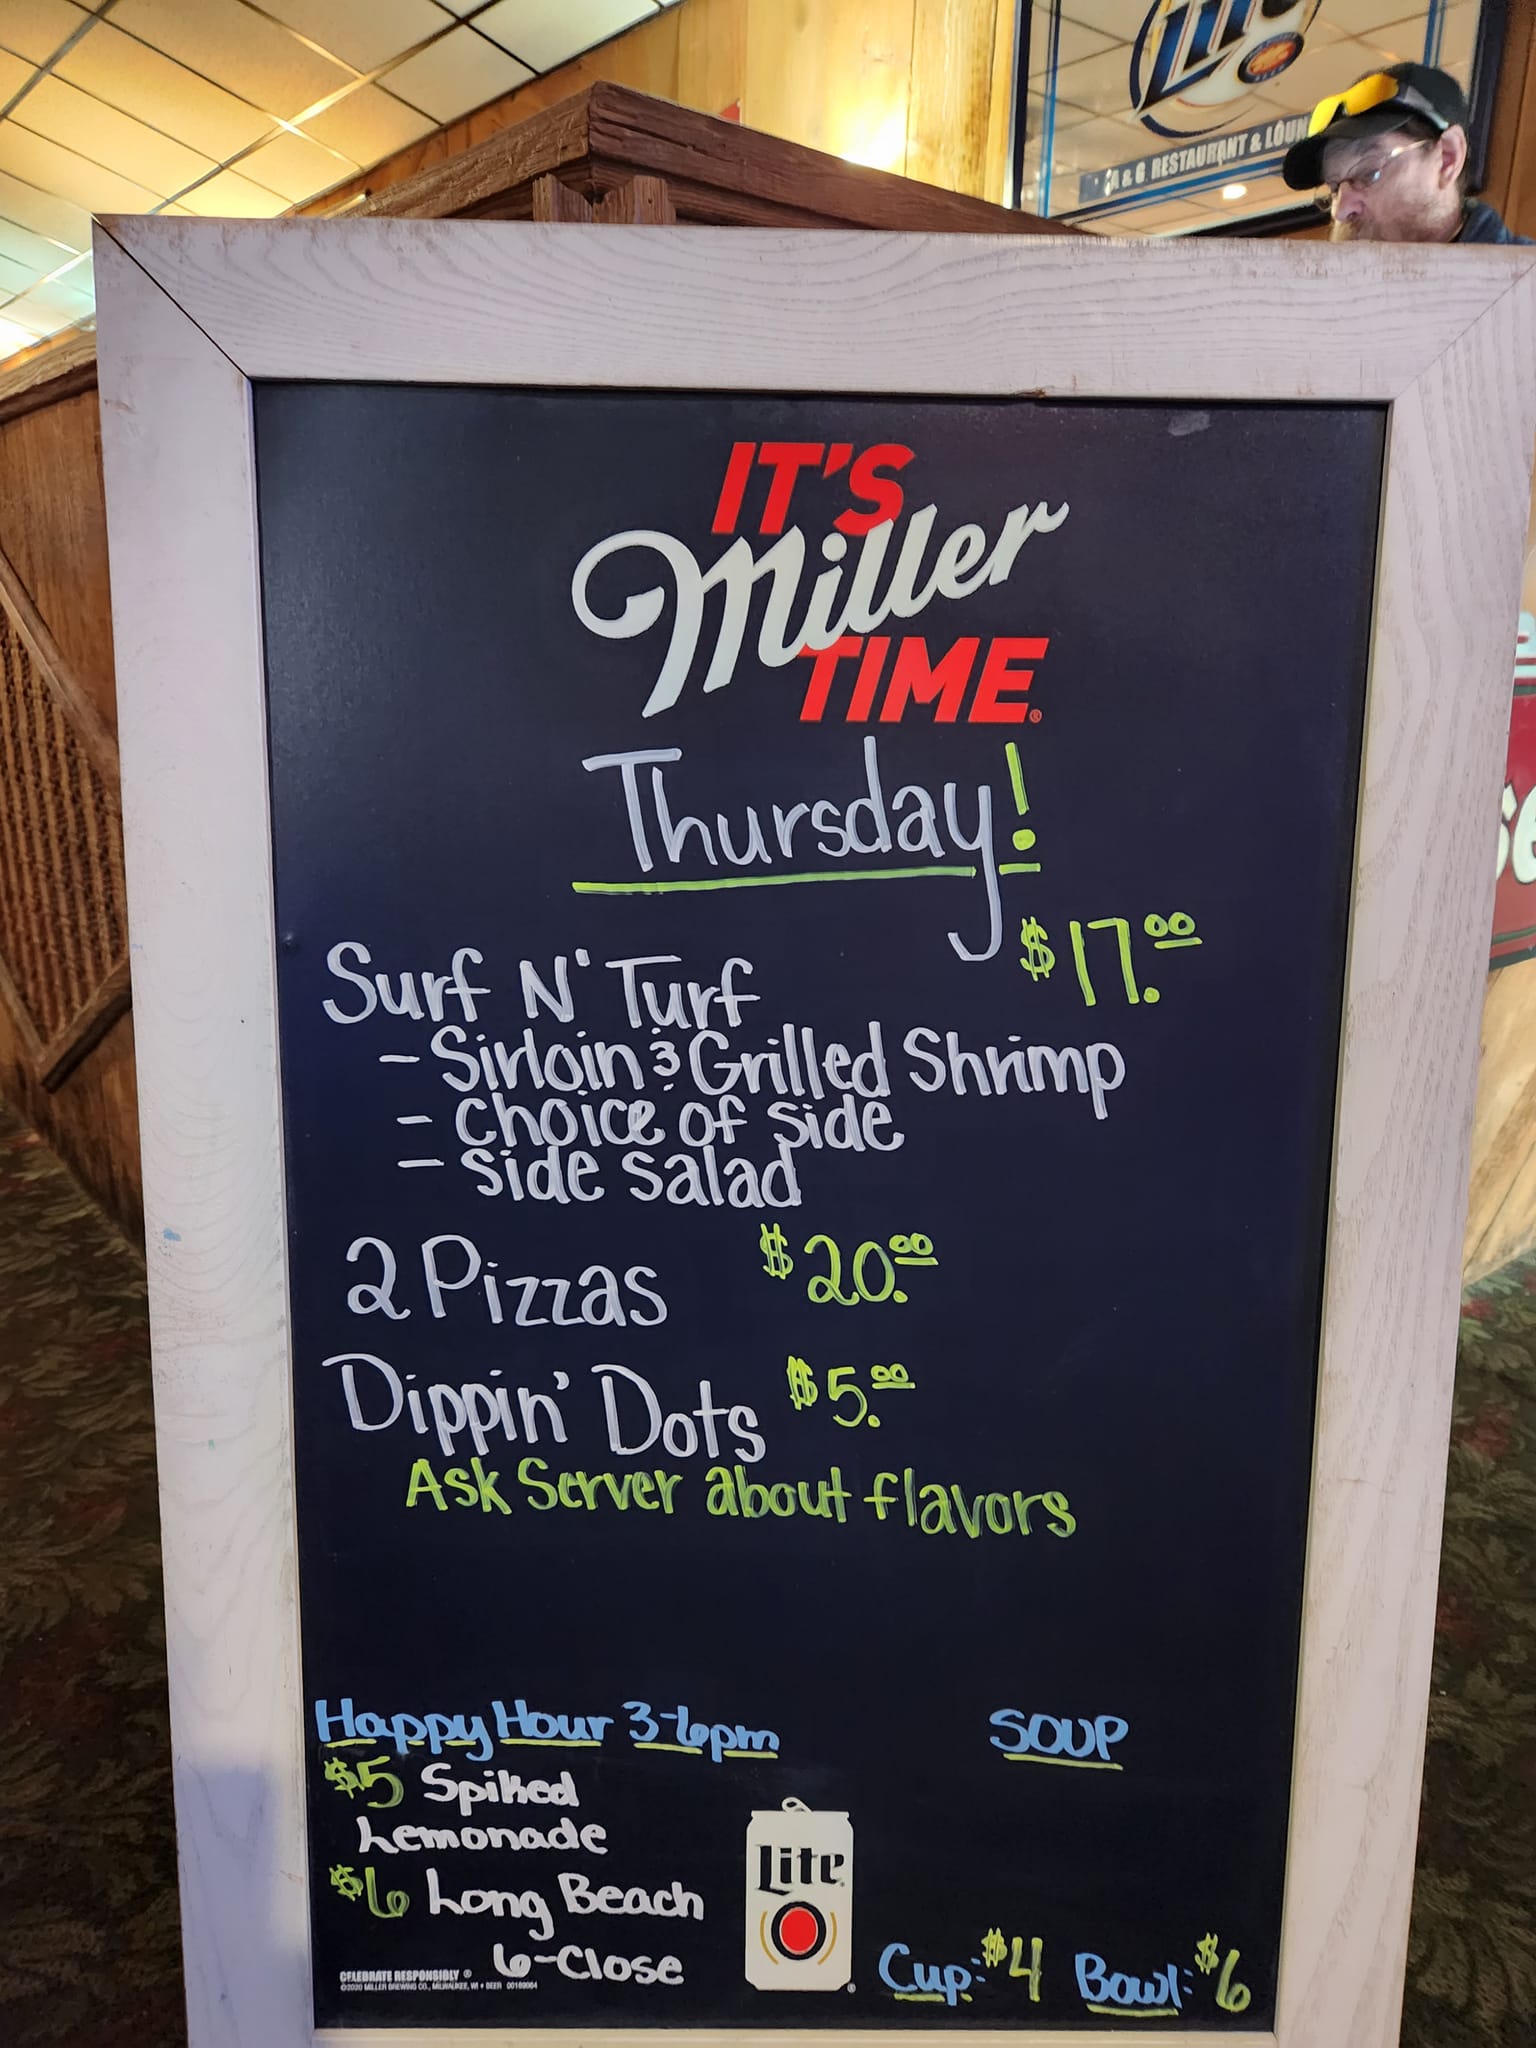 Lite
A & G RESTAURANT & LOUN
IT'S
Miller
TIME®
Thursday!
$17.00
Surf N' Turf
- Sirloin & Grilled Shrimp
- Choice of side
- side salad
2 Pizzas $20.00
Dippin' Dots $5.00
Ask Server about flavors
Happy Hour 3-6pm
$5 Spiked
Lemonade
$6 Long Beach
6-Close
SOUP
Lite
Cup: $4 Bowl: $6
CELEBRATE RESPONSIBLY ®
©2020 MILLER BREWING CO., MILWAUKEE, WI • BEER 00189064